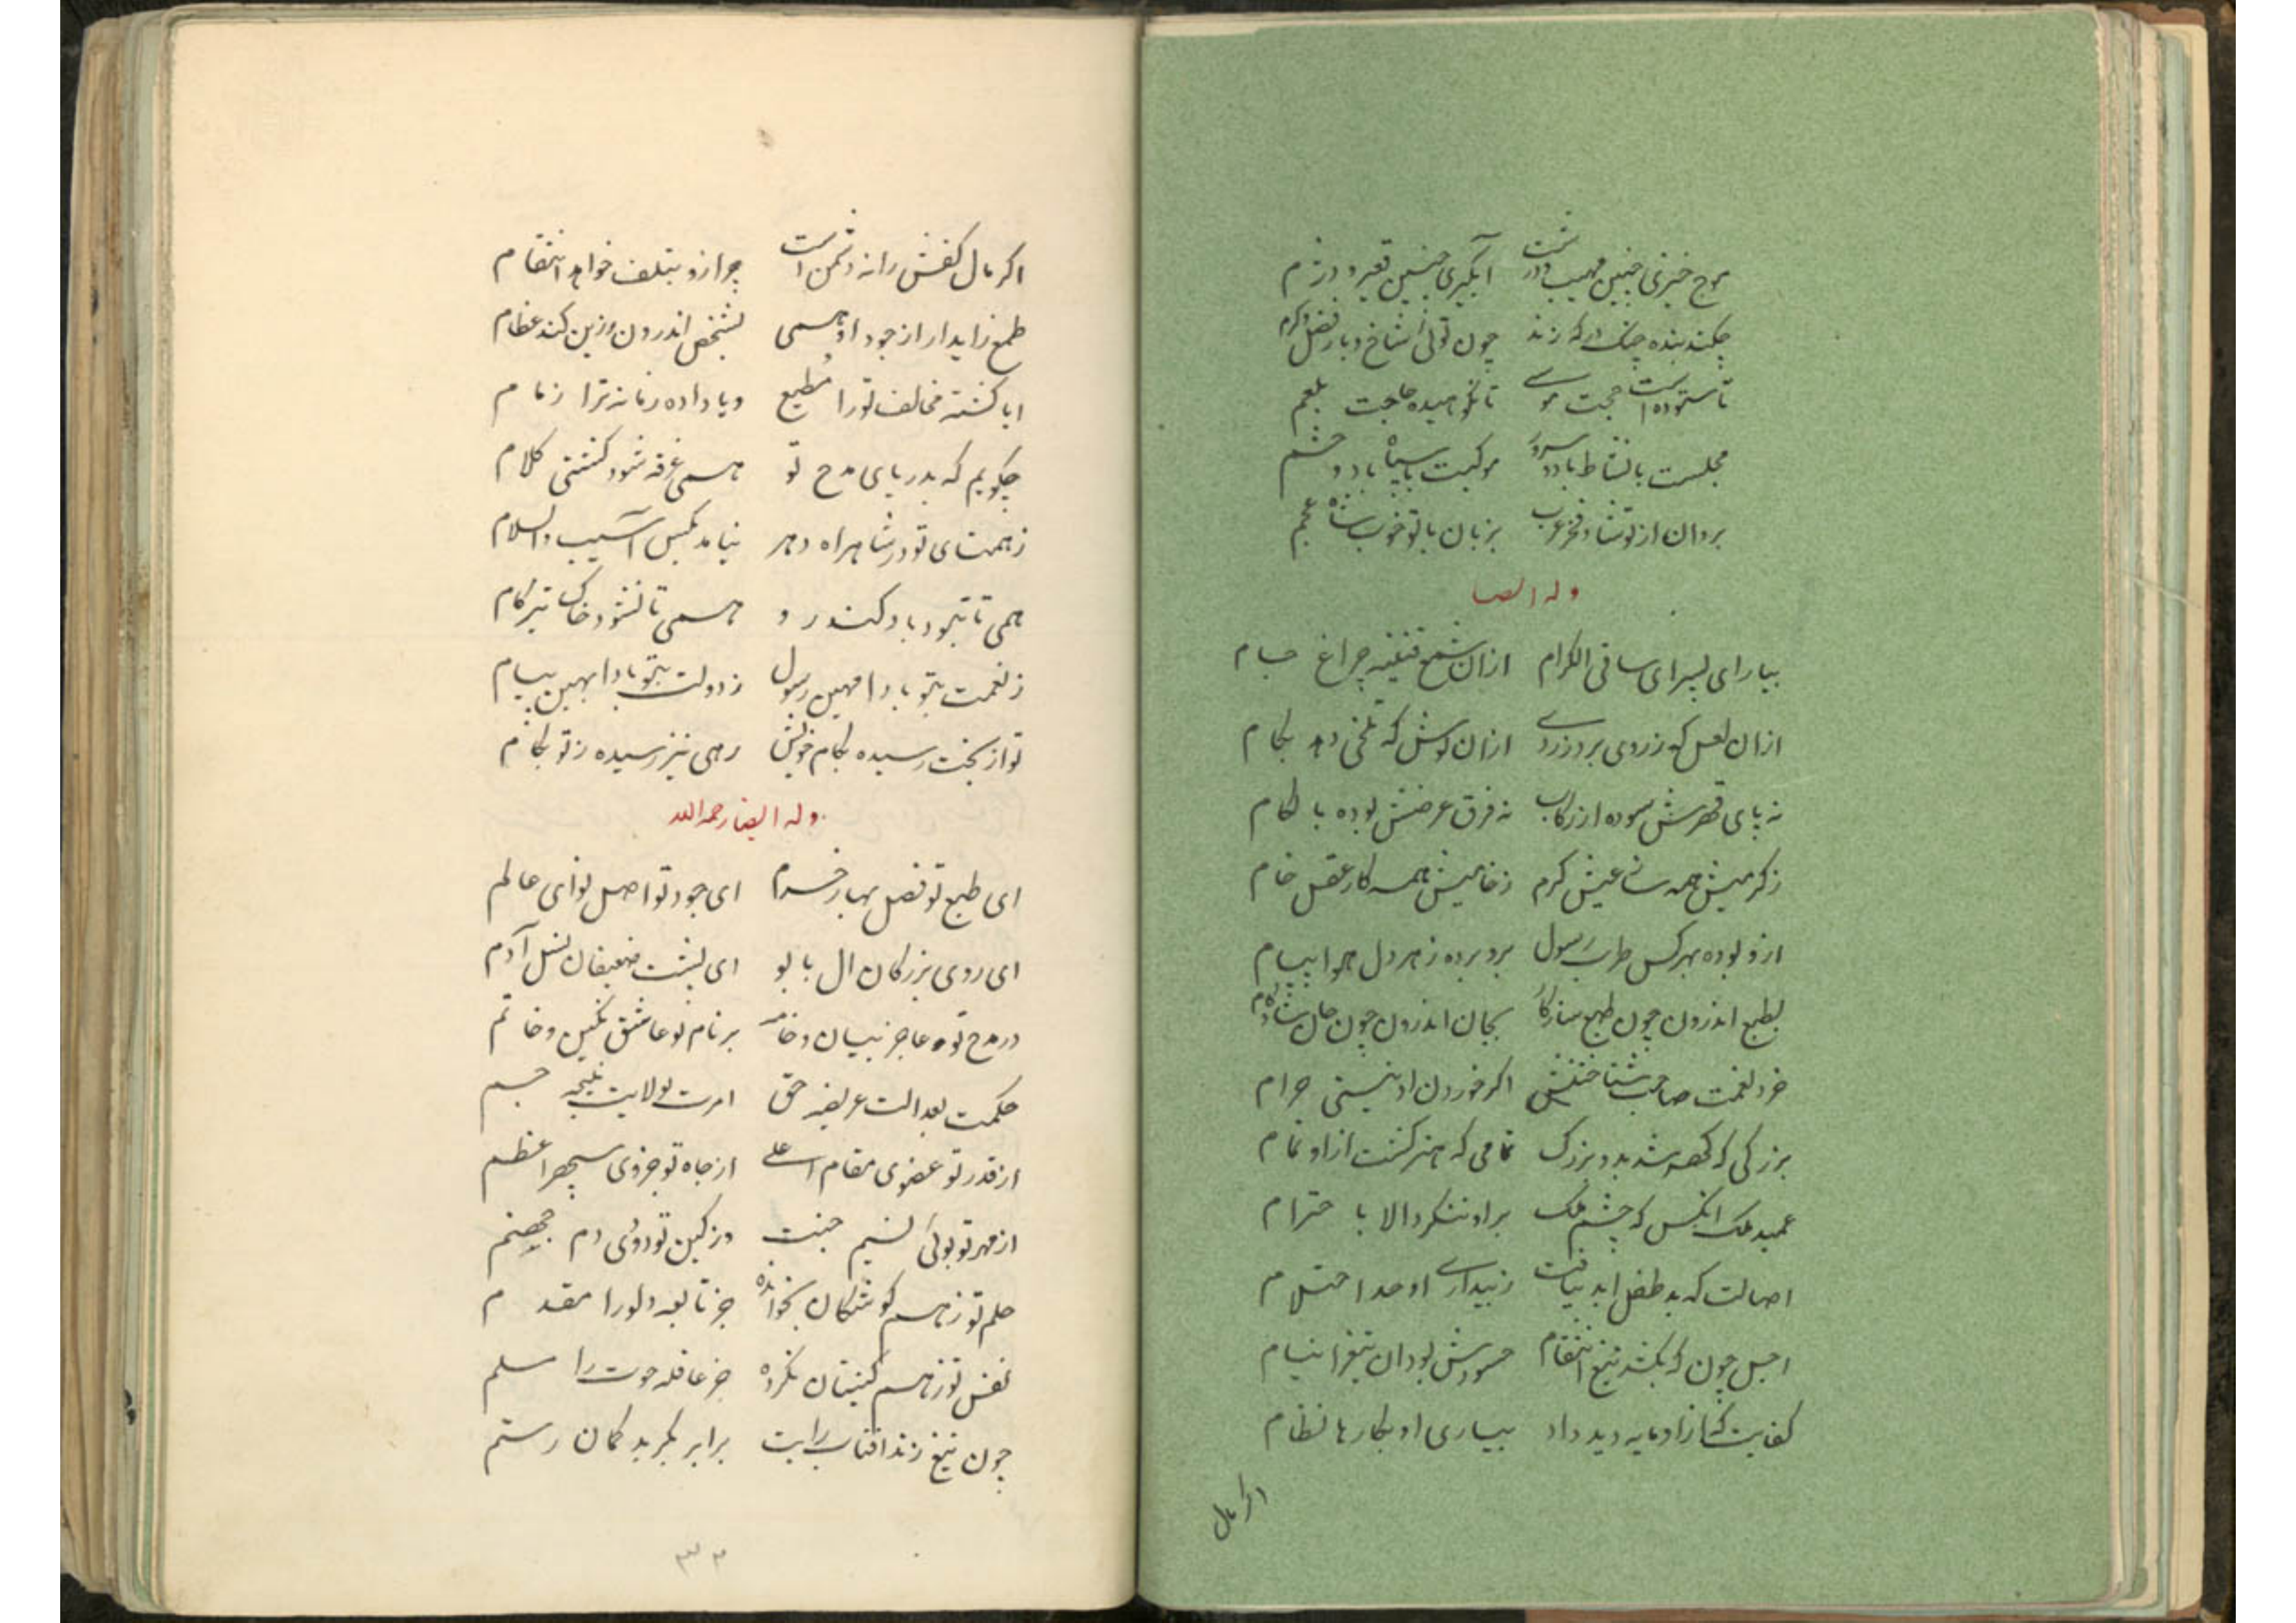 موج خیزی چنین مهیب و درشت ابگیری چنین قعیر و دژم
چکند بنده چنان در که زند چون توئی شاخ و بار فضل و کرم
تا ستوده است حجت موسی تا نکوهیده حاجت بلعم
مجلست با نشاط باد و سرور موکبت با سپاه باد و حشم
بروان از تو شاد فخر عرب بزبان با تو خوب شاه عجم
وله ایضا
بیار ای پسر ای ساقی الکرام ازان شمع قنینه چراغ جام
ازان لعل که زردی برد ز روی ازان نوش که تلخی دهد بکام
نه پای قهرش سوده از رکاب نه فرق عرضش بوده با لکام
ز کرمیش همه ساله عیش کرم ز خامیش همه کار عقل خام
ازو بوده بهر کس طرب رسول برو برده ز هر دل هوا پیام
بطبع اندرون چون طبع سازکار بجان اندرون چون جان شادکام
خرد نعمت صاحب شناختش اکر خوردن او نیستی حرام
بزرکی که کهر شد بدو بزرک تمامی که هنر کشت ازاو تمام
عمید ملک انکس که چشم ملک براو ننکرد الا با حترام
اصالت که بد طفل ابد نیافت ز بیداری او حد احتلام
اجل چون که بکشد تیغ انتقام حسودش بود ان تیغرا نیام
کفایت که ازاو مایه دید داد بسیاری او بکارها نظام
اکر مال
اکر مال کفش را نه دشمن است چرا زو بتلف خواهد انتقام
طمع زاید ار از جود او همی بشخص اندرون زین کند عظام
ایا کشته مخالف تو را مطیع ویا داده زمانه ترا زمام
چکویم که بدریای مدح تو همی غرقه شود کشتی کلام
ز همتای تو در شاهراه دهر نیامد بکس آسیب والسلام
همی تا نبود باد کند رو همی تا نشود خاک تیزکام
ز نعمت بتو بادا مهین رسول ز دولت بتو بادا بهین پیام
تو از بخت رسیده بکام خویش رهی نیز رسیده ز تو بکام
وله ایضا رحمه الله
ای طبع تو فصل بهار خرم ای جود تو اصل نوای عالم
ای روی بزرکان ال بابو ای پشت ضعیفان نسل آدم
در مدح تو عاجز بیان و خامه بر نام تو عاشق نکین و خاتم
حکمت بعدالت عریضه حق امرت بولایت نتیجه جسم
از قدر تو عضوی مقام اعلی از جاه تو جزوی سپهر اعظم
از مهر تو بوئی نسیم جنت در کین تو دودی دم جهنم
حلم تو ز هم کوشکان نخوانده جز تابعه دلو را مقدم
نفس تو ز هم کنیتان نکرده جز عاقله حوت را مسلم
چون تیغ زند افتاب رایت برابر بکرید کمان رستم
۳۳